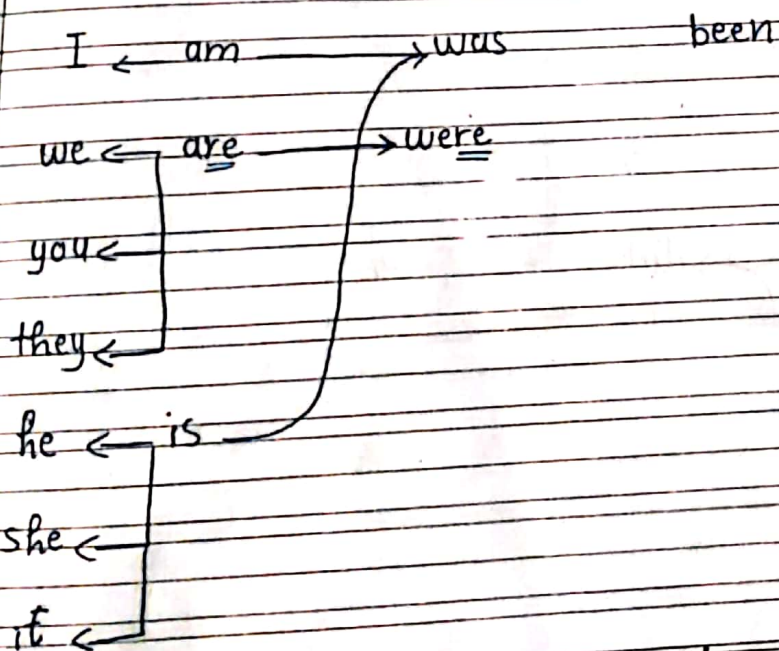 I am was been
we are were
you
they
he is
she
it